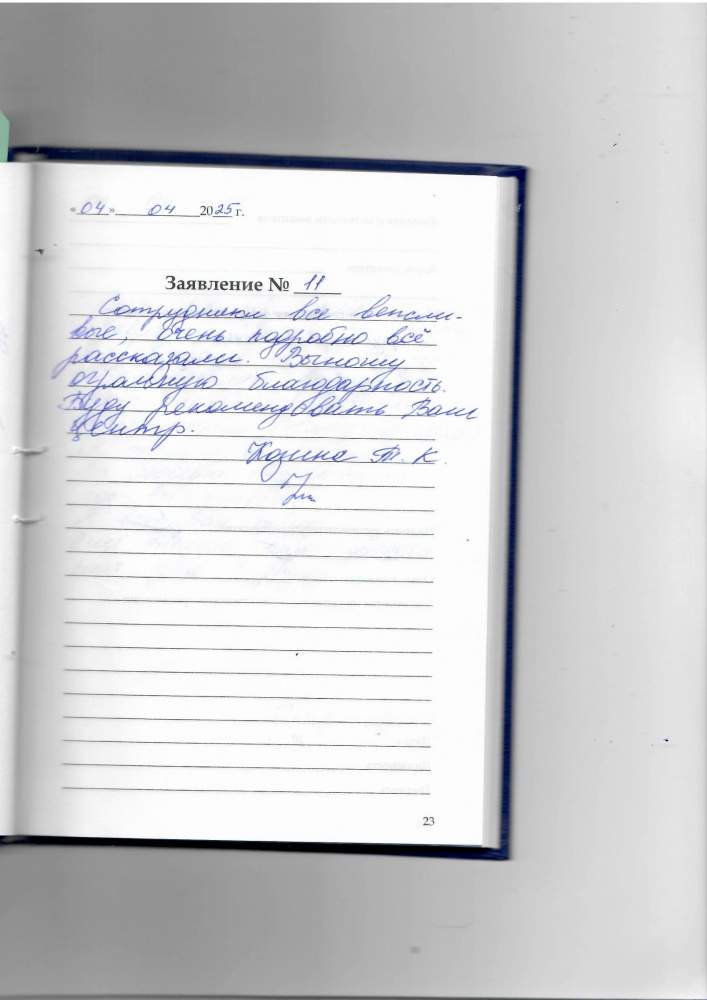 «04» 04 2025 г.
Заявление № 11
Сотрудники все вежли-
вые, очень подробно всё
рассказали. Выношу
огромную благодарность.
Буду рекомендовать Ваш
центр.
Козина Т. К.
23